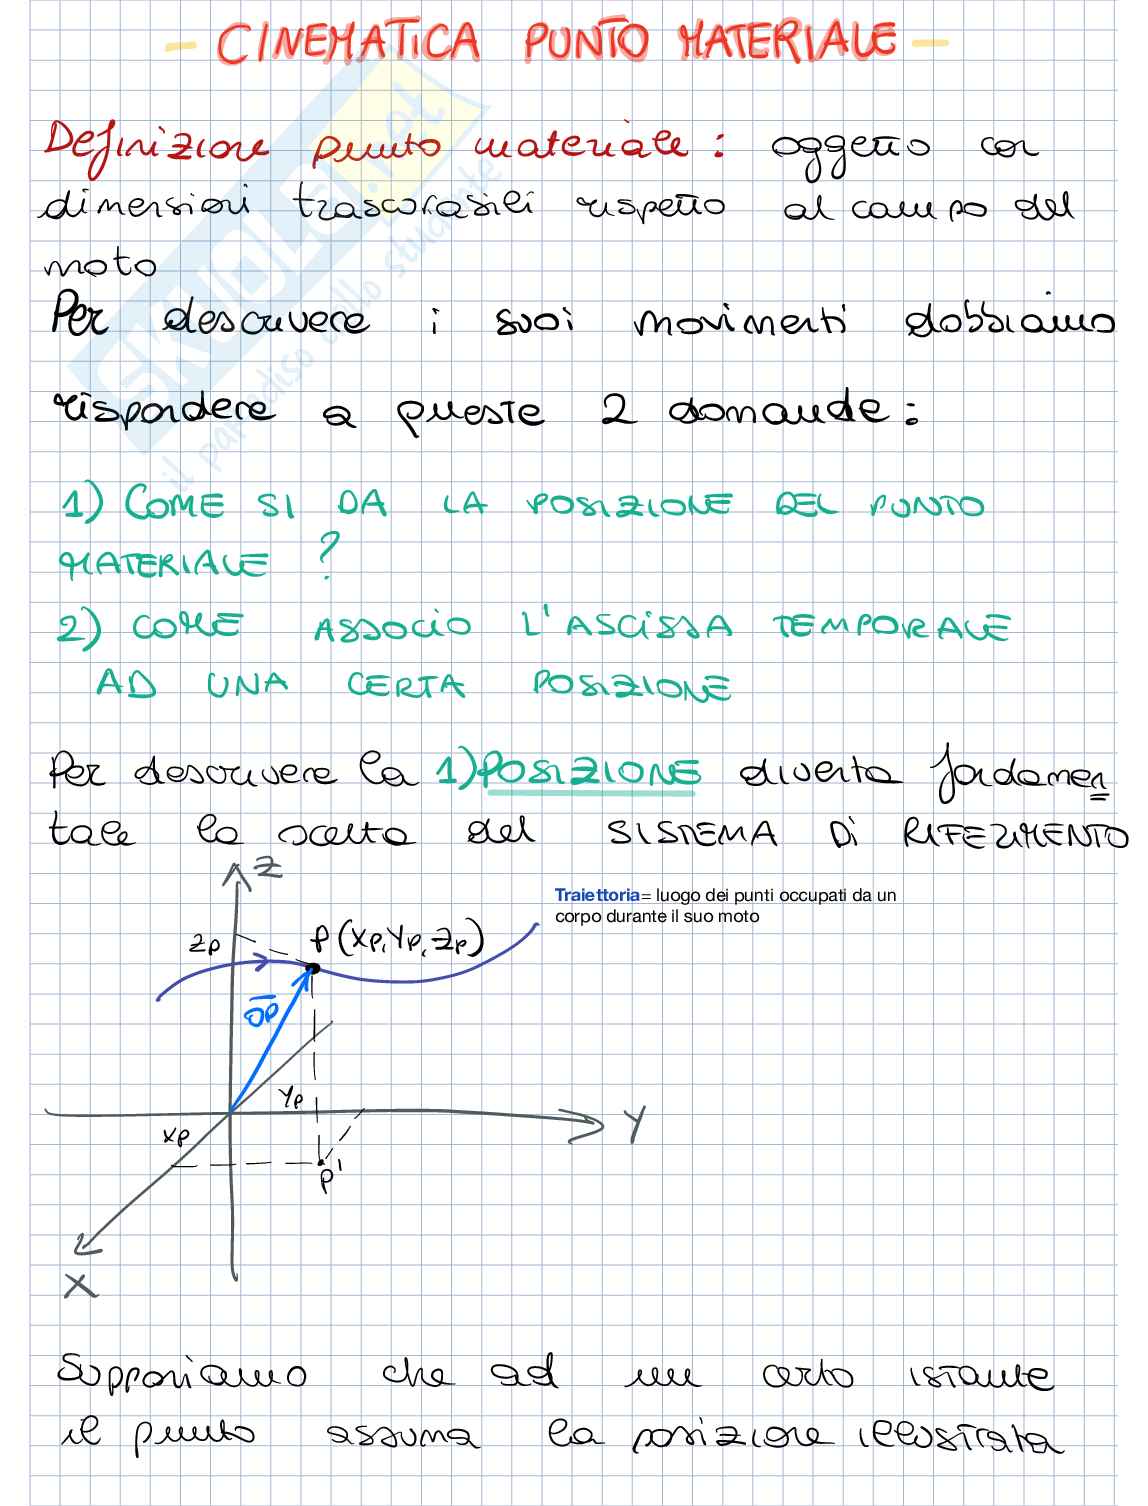 - CINEMATICA PUNTO MATERIALE -
Definizione punto materiale: oggetto con
dimensioni trascurabili rispetto al campo del
moto
Per descrivere i suoi movimenti dobbiamo
rispondere a queste 2 domande:
1) COME SI DA LA POSIZIONE DEL PUNTO
MATERIALE ?
2) COME ASSOCIO L'ASCISSA TEMPORALE
AD UNA CERTA POSIZIONE
Per descrivere la 1) POSIZIONE diventa fondamen
tale la scelta del SISTEMA DI RIFERIMENTO
Z
Traiettoria= luogo dei punti occupati da un
corpo durante il suo moto
ZP P(XP,YP,ZP)
OP
YP
XP
Y
P'
X
Supponiamo che ad un certo istante
il punto assuma la posizione illustrata
SKUOLA.net
il paradiso dello studente